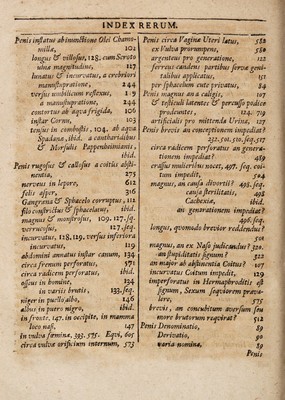 INDEX RERUM.
Penis inflatus ab inunctione Olei Chamo-
milla, 102
longus & villosus, 128. cum Scroto
una magnitudine, 127
lunatus & incurvatus, a crebriori
manstupratione, 244
versus umbilicum reflexus, 119
a manustupratione, 244
contortus ab aqua frigida, 106
instar Cornu, 103
tensus in combustis, 104. ab aqua
Spadana, ibid. a cantharidibus
& Morsulis Pappenheimianis,
ibid.
Penis rugosus & callosus a coitus absti-
nentia, 275
nerveus in lepore, 612
felis asper, 316
Gangræna & Sphacelo corruptus, 111
filo constrictus & sphacelatus, ibid.
magnus & monstrosus, 109. 127. sq.
verrucosus, 127. seq.
incurvatus, 128. 119. versus inferiora
incurvatus, 119
abdomini annatus instar canum, 134
circa fremum perforatus, 571
circa radicem perforatus, ibid.
osseus in homine, 134
in variis brutis, 133. seq.
niger in puello albo, 146
albus in puero nigro, ibid.
in fronte, 147. in occipite, in mamma
loco nasi, 147
in vulva fœminæ, 393. 575. Equi, 605
circa vulvæ orificium internum, 573
Penis circa Vaginæ Uteri latus, 582
ex Vulva prorumpens, 580
argenteus pro generatione, 122
ferreus candens partibus servæ geni-
talibus applicatus, 151
per sphacelum ente privatus, 84
Penis magnus an a caligis, 107
& testiculi latentes & percussu podice
prodeuntes, 124. 719
artificialis pro mittenda Urina, 127
Penis brevis an conceptionem impediat?
circa radicem perforatus an genera-
tionem impediat? 489
crassus mulieribus nocet, 497. seq. coi-
tum impedit, 504
magnus, an causa divortii? 493. seq.
causa sterilitatis, 498
Cachexiæ, ibid.
an generationem impediat?
498. seq.
longus, quomodo brevior reddendus?
501
magnus, an ex Naso judicandus? 320.
an stupiditatis signum? 322
an minuatur abstinentia Coitus? 107
incurvatus Coitum impedit, 129
imperforatus in Hermaphroditis est
signum, Sexum sequiorem præva-
lere, 575
brevis, an concubitum aversum seu
more brutorum requirat? 512
Penis Denominatio, 89
Derivatio, 90
varia nomina, 89
Penis